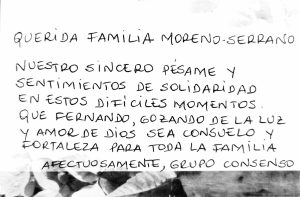 QUERIDA FAMILIA MORENO-SERRANO
NUESTRO SINCERO PÉSAME Y
SENTIMIENTOS DE SOLIDARIDAD
EN ESTOS DIFÍCILES MOMENTOS.
QUE FERNANDO, GOZANDO DE LA LUZ
Y AMOR DE DIOS SEA CONSUELO Y
FORTALEZA PARA TODA LA FAMILIA
AFECTUOSAMENTE, GRUPO CONSENSO